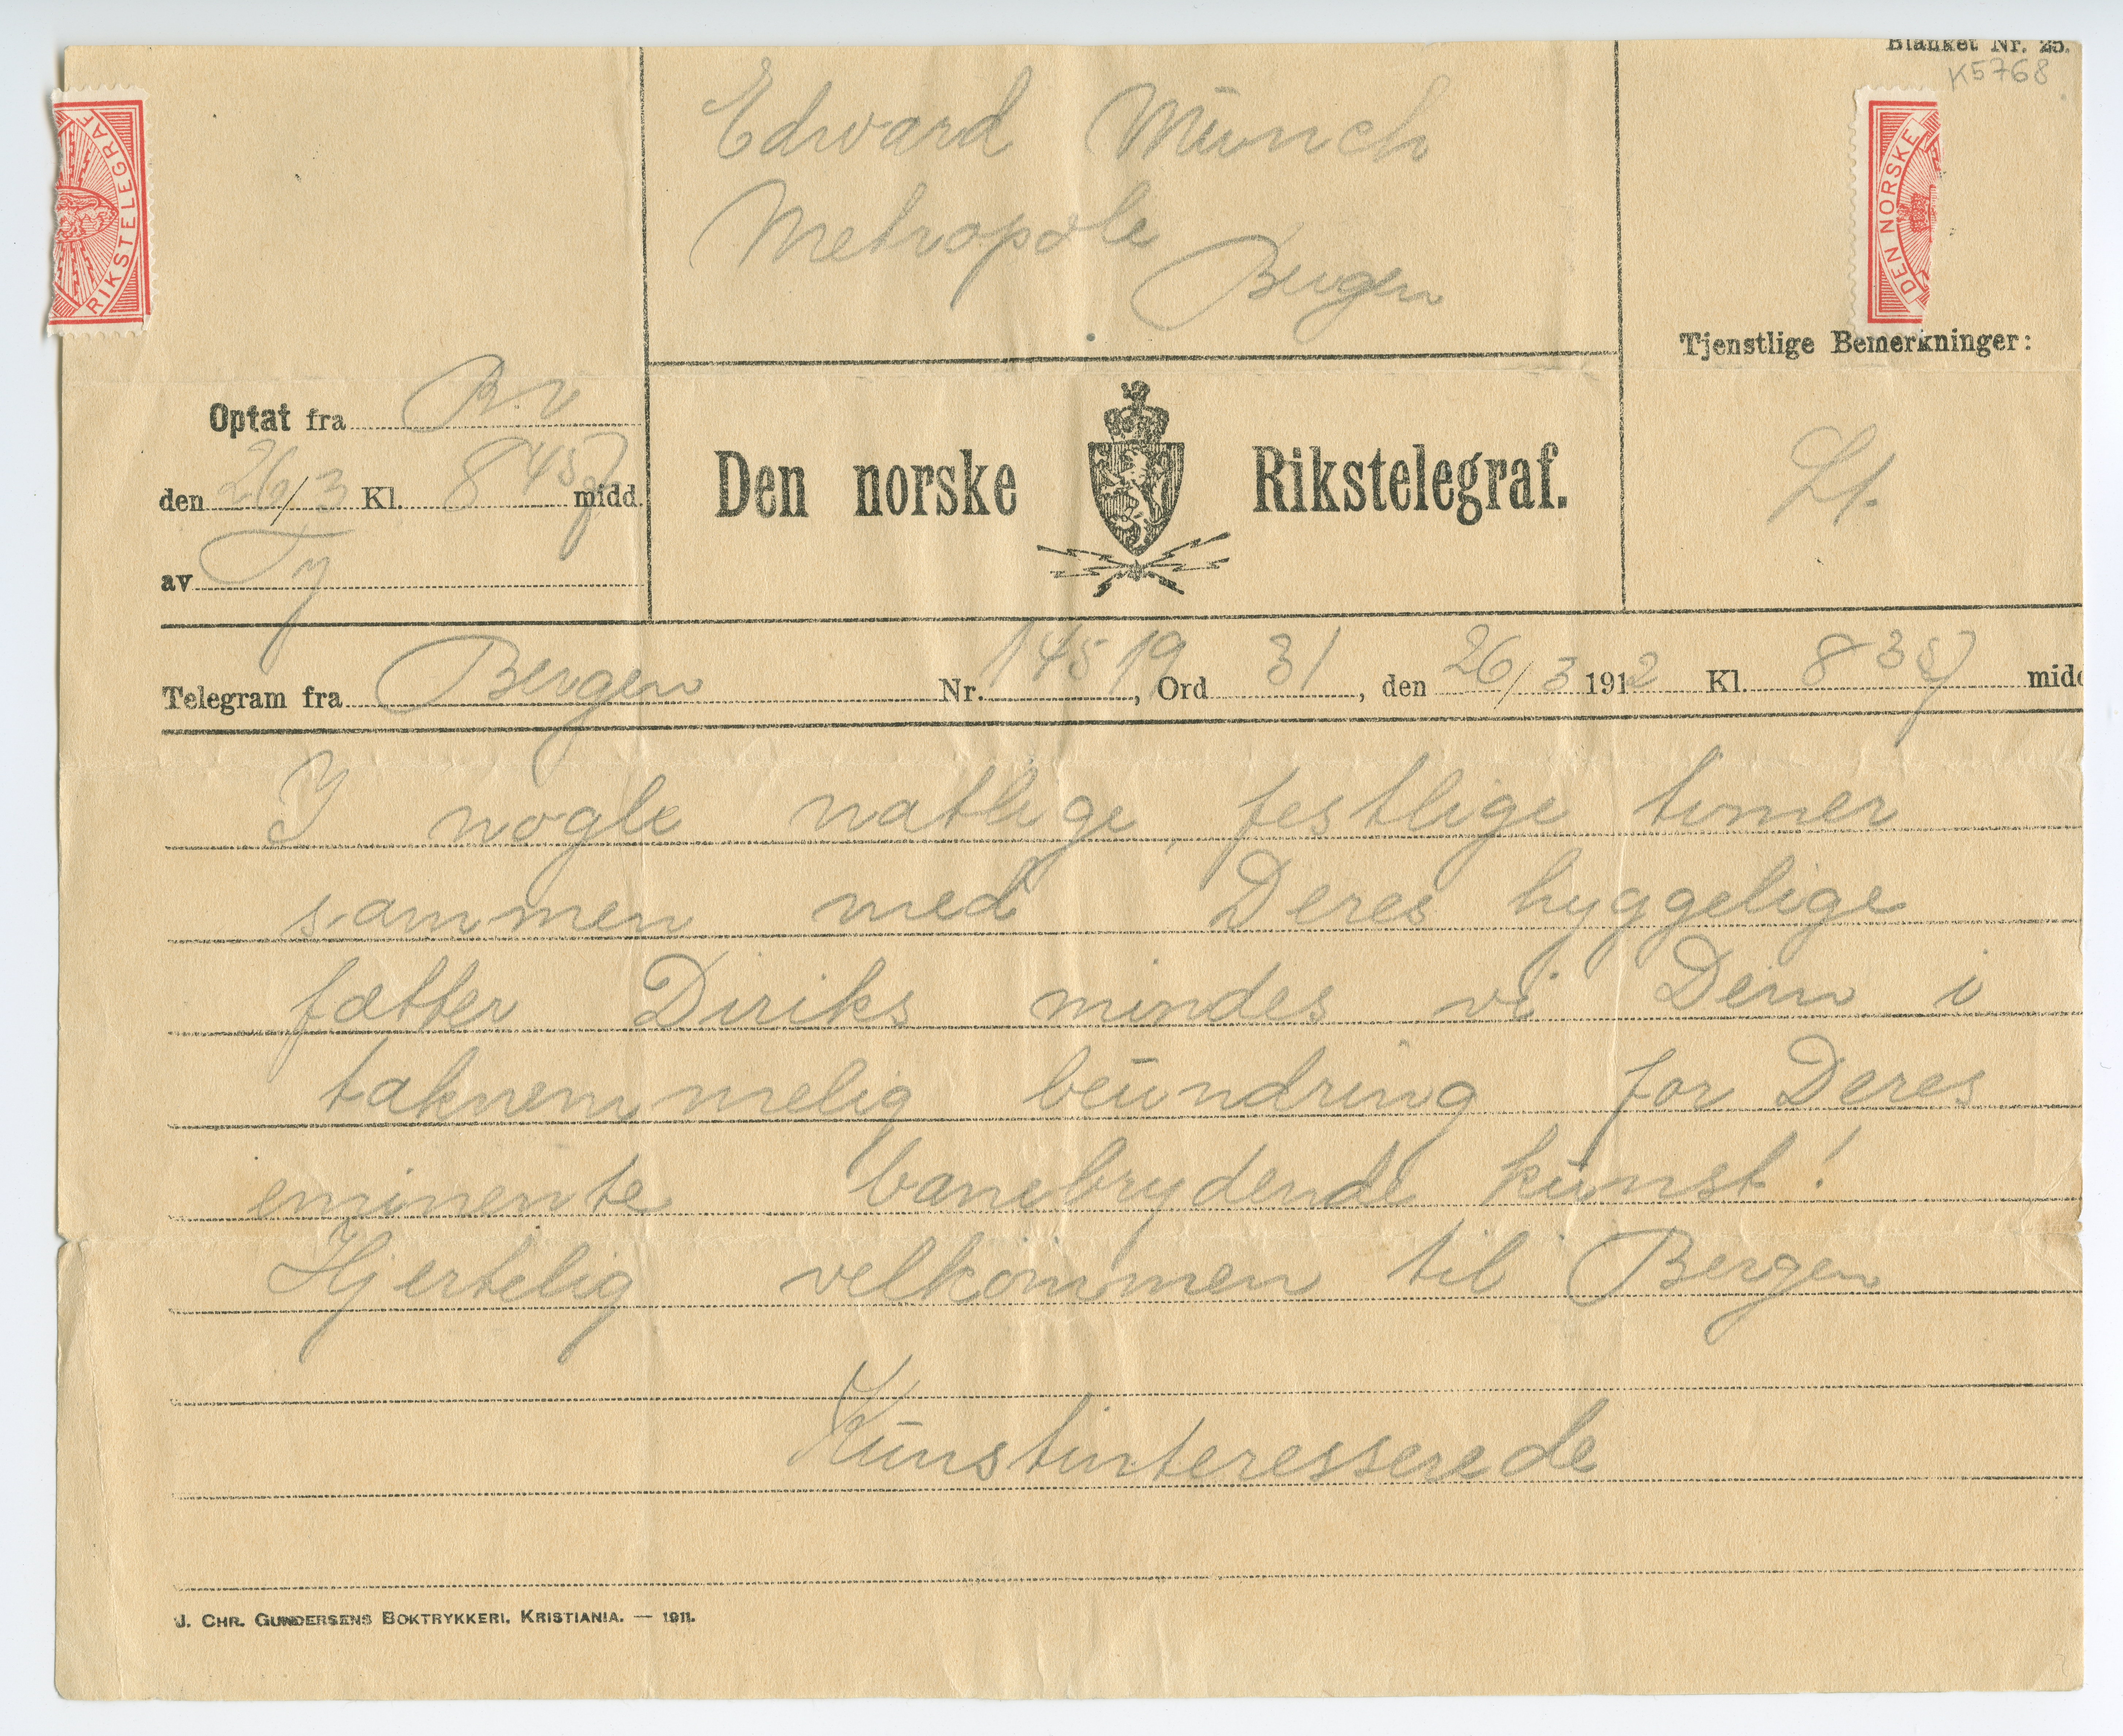 Blanket Nr. 25.
K5768
Edward Münch
Metropole
Bergen
RIKSTELEGRAF
DEN NORSKE
Tjenstlige Bemerkninger:
Optat fra
den 26/3 Kl. 8 45 midd.
av
Den norske Rikstelegraf.
Telegram fra Bergen Nr. 145 19, Ord 31, den 26/3 1912 Kl. 8 35 midd
I nogle natlige, festlige timer
sammen med Deres hyggelige
fætter Diriks mindes vi Dem i
taknemmelig beündring for Deres
eminente banebrydende künst!
Hjertelig velkommen til Bergen
Künstinteresserede
J. CHR. GUNDERSENS BOKTRYKKERI, KRISTIANIA. — 1911.